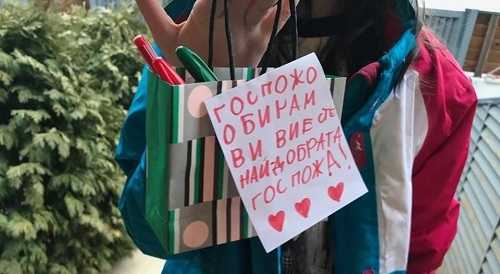 ГОСПОЖО
ОБИРАМ
ВИ ВИЕ СТЕ
НАЙДОБРАТА
ГОСПОЖА!